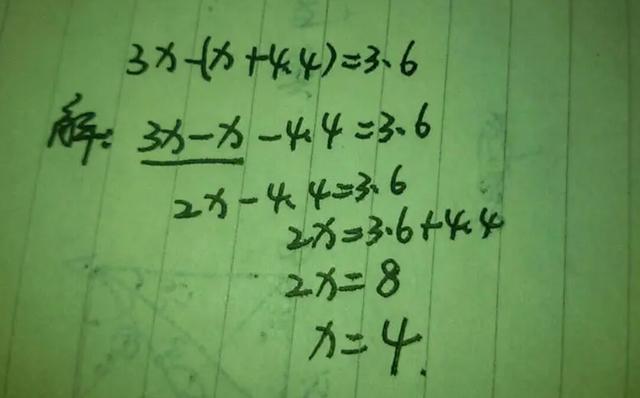 3x-(x+4.4)=3.6
解: 3x-x-4.4=3.6
2x-4.4=3.6
2x=3.6+4.4
2x=8
x=4.